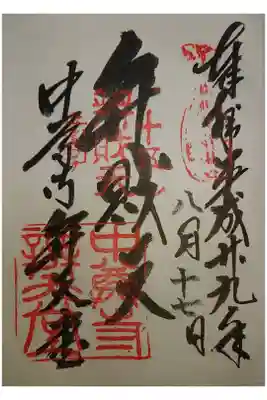 奉拝 平成廿九年
八月十七日
弁財天
中尊寺 弁天堂